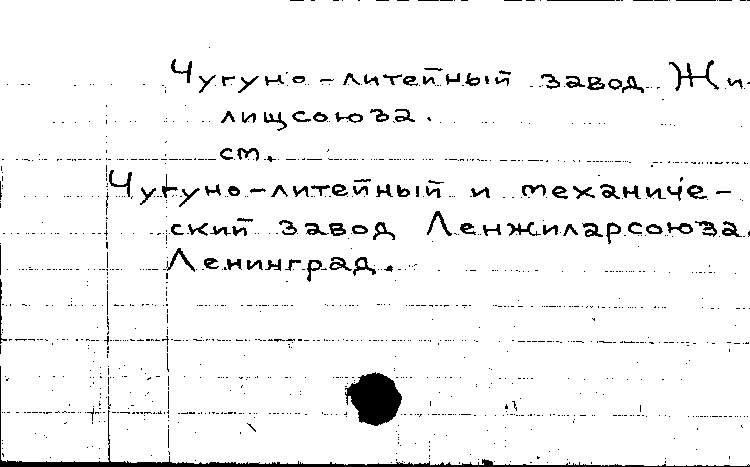 Чугуно-литейный завод Жи-
лищсоюза.
ст.
Чугуно-литейный и механиче-
ский завод Ленжиларсоюза.
Ленинград.